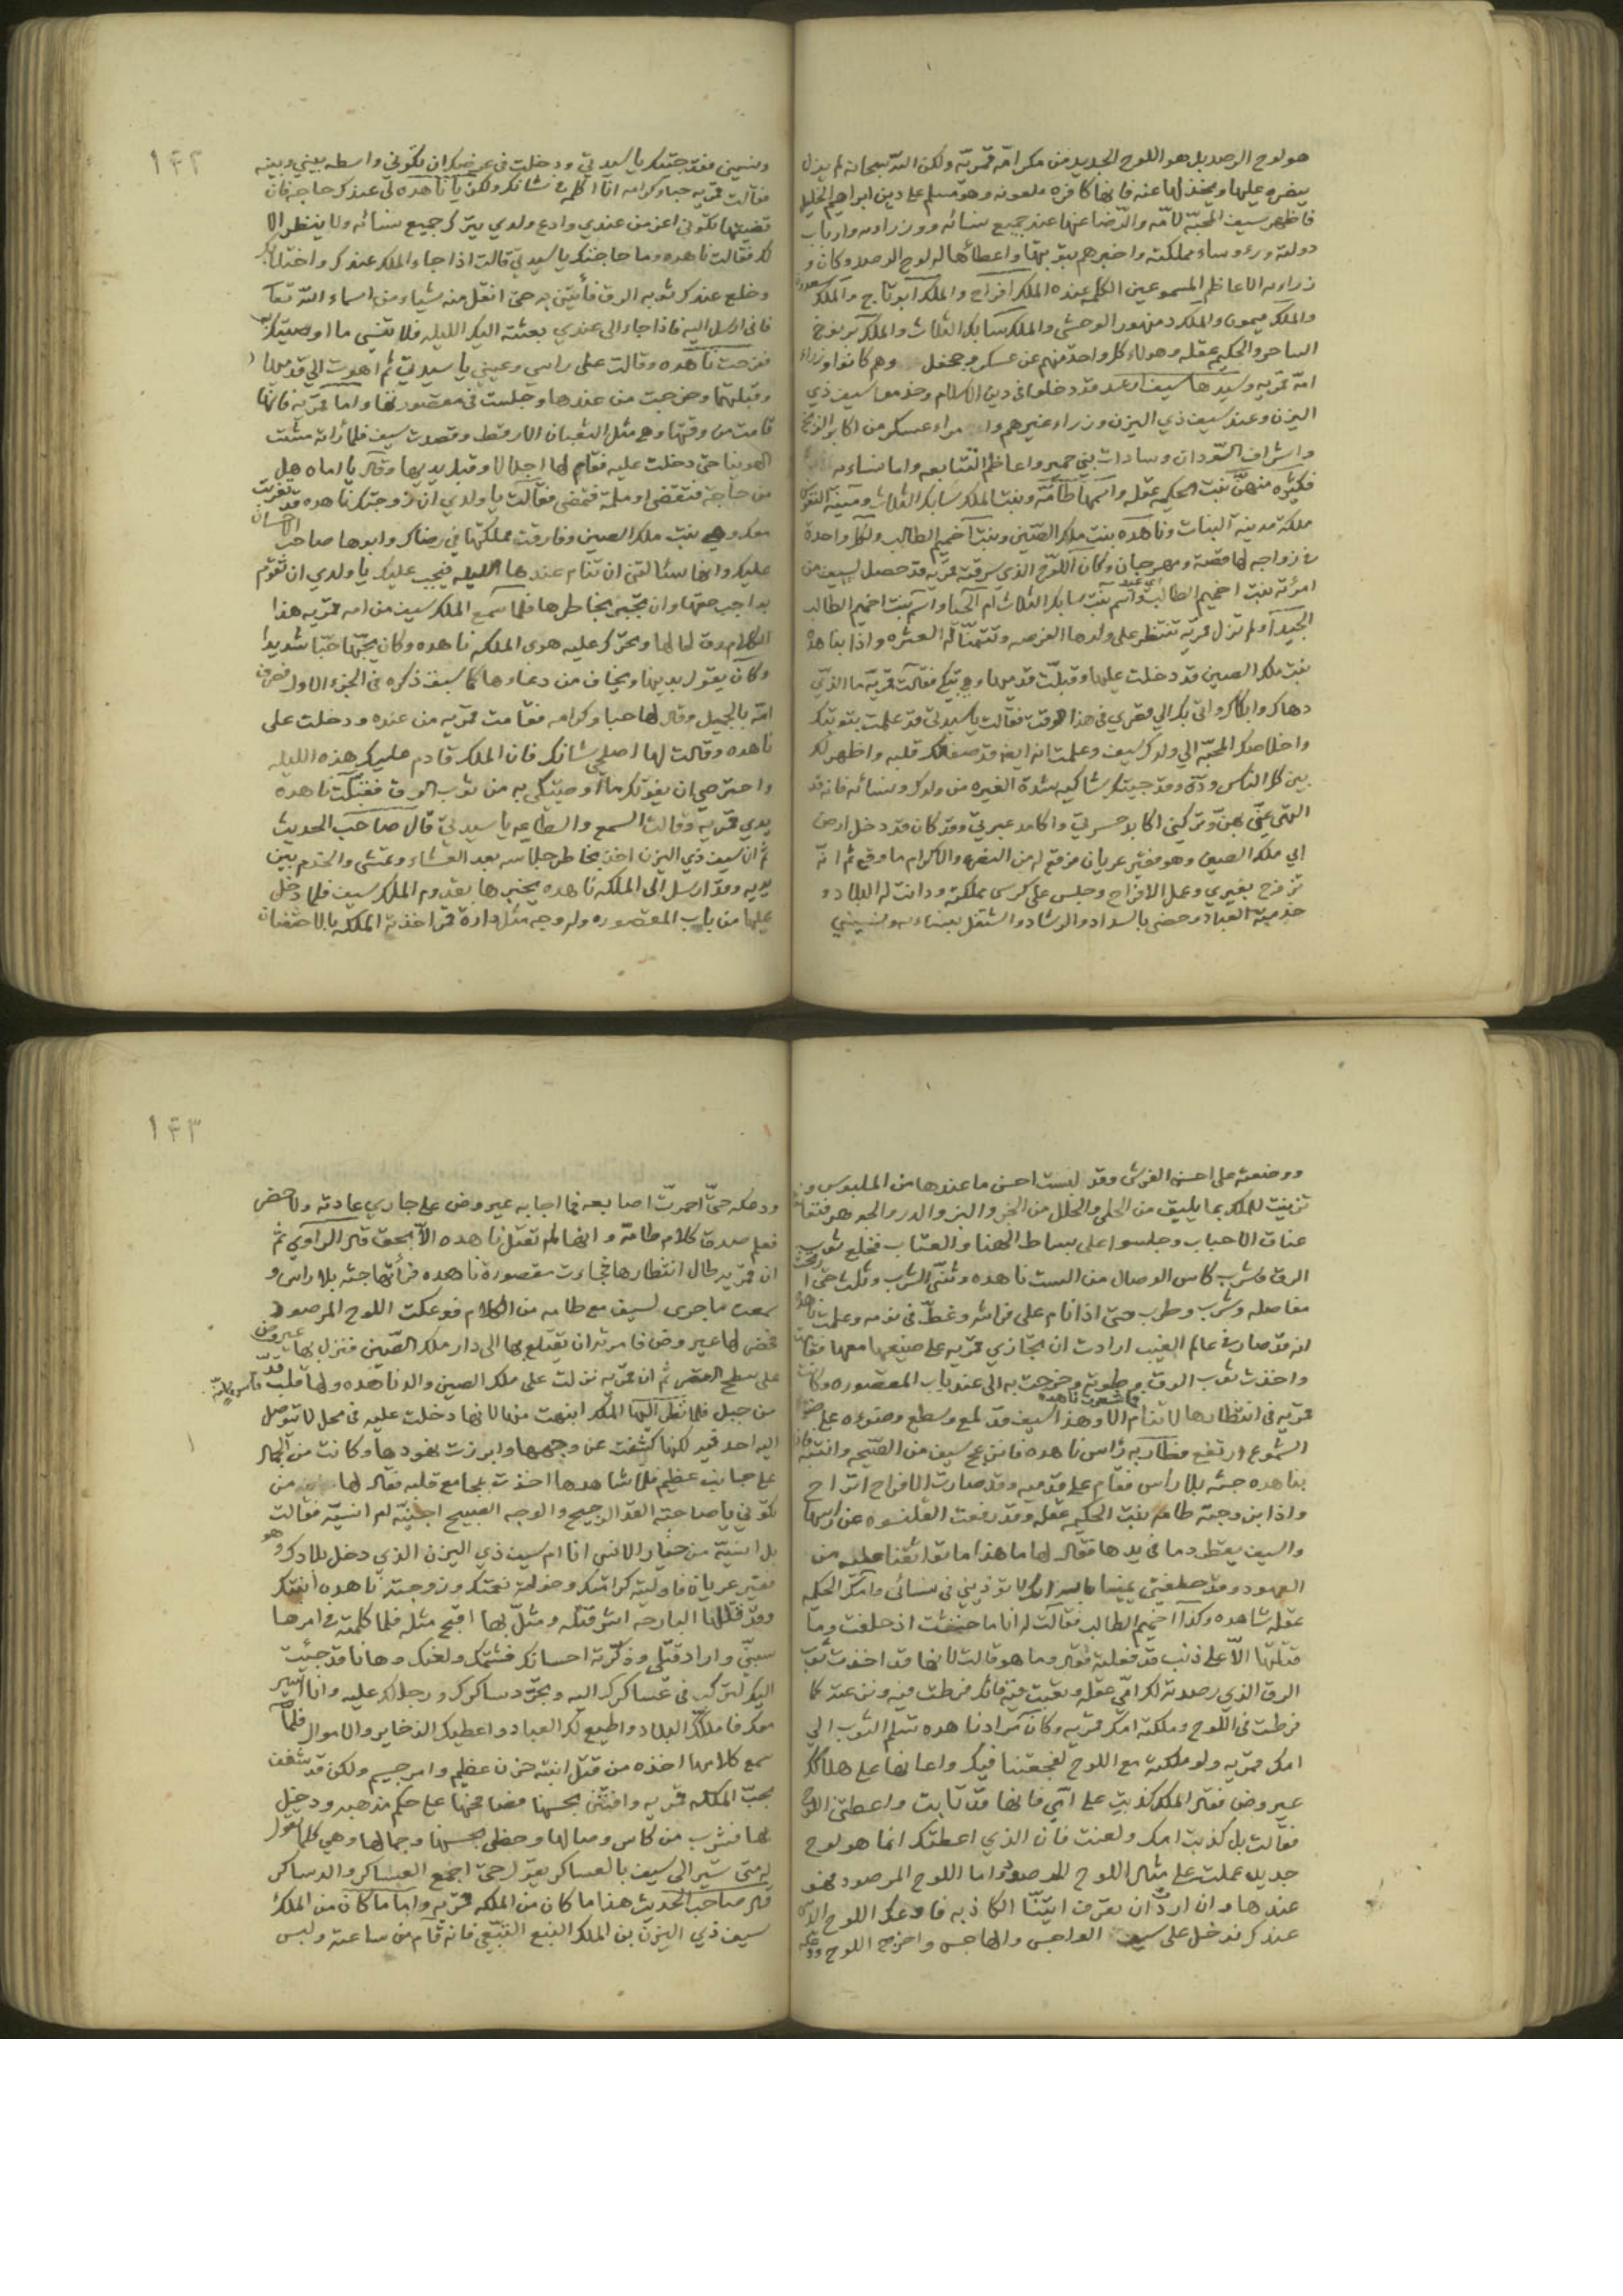 هو لوح الرصد بل هو اللوح الجديد من مكر امه قمريه ولكن الله سبحانه لم يزل
ينصره عليها ويخذلها عنه فانها كافره ملعونه وهو مسلم على دين ابراهيم الخليل
فاظهر سيف المحبه لامه والرضا عنها عند جميع نسائه ووزراءه وارباب
دولته ورءوساء مملكته واخبرهم بتوبتها واعطائها له لوح الرصد وكان و
زراءه الاعاظم المسموعين الكلمه عنده الملك افراح والملك ابو تاج والملك سعدون
والملك ميمون والملك دمنهور الوحشى والملك سابك الثلاث والملك برنوخ
الساحر والحكيم عقله وهولاء كل واحد منهم عن عسكر وجحفل وهم كانوا وزراء
امه قمريه وسيدها سيف ارعد قد دخلوا فى دين الاسلام وخدموا سيف ذي
اليزن وعند سيف ذي اليزن وزراء غيرهم وامراء عسكر من اكابر الزنج
واشراف السودان وسادات بني حمير واعاظم التتابعه واما نساءه
فكثيره منهن بنت الحكيمه عقله واسمها طامه وبنت الملك سابك الثلاث ومنية النفوس
ملكة مدينه البنات وناهده بنت ملك الصين وبنت اخميم الطالب ولكل واحدة
في زواجه لها قصة ومهرجان وكان اللوح الذي سرقته قمريه قد حصل لسيف من
امرئته بنت اخميم الطالب واسم بنت سابك الثلاث ام الحيا واسم بنت اخميم الطالب
الجيدا ولم تزل قمريه تنتظر على ولدها الفرصه وتتمنا له العثره واذا بناهده
بنت ملك الصين قد دخلت عليها وقبلت قدميها وهي تبكي فقالت قمريه ما الذي
دهاك وابكاك واتى بك الي مقصري في هذا الوقت فقالت يا سيدتي قد علمت بتوبتك
واخلاصك المحبه الي ولدك سيف وعلمت انه ايضا قد صفا لك قلبه واظهر لك
بين كل الناس وده وقد جيتك شاكيه شدة الغيره من ولدك ونسائه فانه قد
التهى عني بهن وتركني اكابد حسرتي واكامد عبرتي وقد كان قد دخل ارض
ابي ملك الصين وهو فقير عريان فوقع له من النصر والاكرام ما وقع ثم انه
تزوج بغيري وعمل الافراح وجلس على كرسي مملكته ودانت له البلاد و
خدمته العباد وحضي بالسداد والرشاد واشتغل بنساءه ونسيني

١٤٢
ونسيني فقد جيتك يا سيدتي ودخلت في عرضك ان تكوني واسطه بيني وبينه
فقالت قمريه حبا وكرامه انا اكلمه في شانك ولكن يا ناهده لي عندك حاجه فان
قضيتها تكوني اعز من عندي وادع ولدي يترك جميع نسائه ولا ينظر الا
لك فقالت ناهده وما حاجتك يا سيدتي قالت اذا جاء الملك عندك واختلا بك
وخلع عندك ثوبه الرق فأتيني به حتى انقل منه شياء من اسماء الله تعالى
فاني ارسل اليه فاذا جاء الى عندي بعثته اليك الليله فلا تنسي ما اوصيتك به
ففرحت ناهده وقالت على راسي وعيني يا سيدتي ثم اهوت الى قدميها
وقبلتهما وخرجت من عندها وجلست في مقصورتها واما قمريه فانها
قامت من وقتها وهي مثل الثعبان الارقط وقصدت سيف فلما راته مشت
الهوينا حتى دخلت عليه فقام لها اجلالا وقبل يديها وقال يا اماه هل
من حاجة فتقضى او ملمة فتمضى فقالت يا ولدي ان زوجتك ناهده قد تغربت
معك وهي بنت ملك الصين وفارقت مملكتها في رضاك وابوها صاحب الاحسان
عليك وانها سئالتني ان تنام عندها الليله فيجب عليك يا ولدي ان تقوم
بواجب حقها وان تجبر بخاطرها فلما سمع الملك سيف من امه قمريه هذا
الكلام رق لها وتحرك عليه هوى الملكه ناهده وكان يحبها حبا شديدا
وكان يقول بدينها ويخاف من دعاءها كما سبق ذكره في الجزء الاول فعرف
امه بالجميل وقال لها حبا وكرامه فقامت قمريه من عنده ودخلت على
ناهده وقالت لها اصلحي شانك فان الملك قادم عليك هذه الليله
واحترصي ان يفوتك ما اوصيتكي به من ثوب الرق فقبلت ناهده
يدي قمريه وقالت السمع والطاعه يا سيدتي قال صاحب الحديث
ثم ان سيف ذي اليزن اخذ بخاطر جلاسه بعد العشاء وتمشى والخدم بين
يديه وقد ارسل الى الملكه ناهده يخبرها بقدوم الملك سيف فلما دخل
عليها من باب المقصوره وله وجه مثل دارة قمر اخذته الملكه بالاحتضان

ووضعته على احسن الفرش وقد لبست احسن ما عندها من الملبوس و
تزينت للملك بما يليق من الحلي والحلل من الخز والبز والدر والجوهر فتعانقا
عناق الاحباب وجلسوا على بساط الهنا والعتاب فخلع ثوب
الرق وشرب كاس الوصال من الست ناهده وثنى الشرب وثلث حتى ارتخت
مفاصله وشرب وطرب حتى اذا نام على فراشه وغط في نومه وعلمت ناهده
انه قد صار في عالم الغيب ارادت ان تجازي قمريه على صنيعها معها فقامت
واخذت ثوب الرق وطوته وخرجت به الى عند باب المقصوره وكانت
قمريه في انتظارها فما شعرت ناهده الا وهذا سيف قد لمع وسطع وضوءه على ضوا
الشموع ارتفع فطار به راس ناهده فانزعج سيف من الصيحه وانتبه فاذا
بناهده جثه بلا رأس فقام على قدميه وقد صارت الافراح اتراح
واذا بزوجته طامه بنت الحكيمه عقله وقد رفعت القلنسوه عن راسها
والسيف يقطر دما في يدها فقال لها ما هذا ما تواثقنا عليه من
العهود وقد حلفتي يمينا لا تؤذيني في نسائي وامك الحكيمه
عقله شاهده وكذا اخميم الطالب فقالت له انا ما حنثت اذ حلفت وما
قتلتها الا على ذنب قد فعلته فقال وما هو قالت لانها قد اخذت ثوب
الرق الذي رصدته لك امي عقله وتعبت فيه فانك فرطت فيه ونزعته كما
فرطت في اللوح وملكته امك قمريه وكان مراد ناهده تسلم الثوب الى
امك قمريه ولو ملكته مع اللوح لفجعتنا فيك واعانها على هلاكك
عيروض فقال الملك كذبتي على امي فانها قد تابت واعطتني اللوح
فقالت بل كذبت امك ولعنت فان الذي اعطتك انما هو لوح
جديد عملته على مثال اللوح المرصود واما اللوح المرصود فهو
عندها وان اردت ان تعرف ايتنا الكاذبه فادعك اللوح الذي
عندك فدخل على سيف الواجس والهاجس واخرج اللوح ودعكه

١٤٣
ودعكه حتى احمرت اصابعه فما اجابه عيروض على جاري عادته ولا حضر
فعلم صدق كلام طامه وانها لم تقتل ناهده الا بحق قال الراوى ثم
ان قمريه طال انتظارها فجاءت مقصورة ناهده فرأتها جثه بلا راس و
سمعت ما جرى لسيف مع طامه من الكلام فدعكت اللوح المرصود
فحضر لها عيروض فامرته ان يقتلع بها الى دار ملك الصين فنزل بها عيروض
على سطح القصر ثم ان قمريه نزلت على ملك الصين والد ناهده ولها قلب قد
من جبل فلما نظر اليها الملك انبهت منها لانها دخلت عليه في محل لا توصل
اليه احد قبل لكنها كشفت عن وجهها وابرزت نهودها وكانت من الجمال
على جانب عظيم فلما شاهدها اخذت بمجامع قلبه فقال لها من
تكوني يا صاحبة القد الرجيح والوجه الصبيح اجنيه ام انسيه فقالت
بل انسيه من خيار الانس انا ام سيف ذي اليزن الذي دخل بلادك وهو
فقير عريان فاوليته كرامتك وخولته نعمتك وزوجته ناهده ابنتك
وقد قتلها البارحه اشر قتله ومثل بها اقبح مثله فلما كلمته في امرها
سبني واراد قتلي وذكرته احسانك فشتمك ولعنك وها انا قد جيئت
اليك لتركب في عساكرك اليه وتجرد دساكرك ورجالك عليه وانا اسير
معك فاملكك البلاد واطيع لك العباد واعطيك الذخاير والاموال فلما
سمع كلامها اخذه من قتل ابنته حزن عظيم وامر جسيم ولكن قد شغف
بحب الملكه قمريه وافتتن بحسنها فصافحها على حكم مذهبه ودخل
بها فشرب من كاس وصالها وحظي بحسنها وجمالها وهي كلما تقول
له متى تسير الى سيف بالعساكر يقول حتى اجمع العساكر والدساكر
قال صاحب الحديث هذا ما كان من الملكه قمريه واما ما كان من الملك
سيف ذي اليزن بن الملك التبع التبعي فانه قام من ساعته ولبس